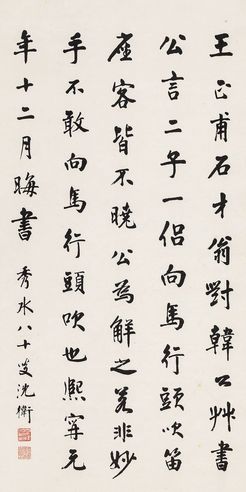 王正甫石才翁對韓公艸書
公言二子一似向馬行頭吹笛
座客皆不曉公為解之若非妙
手不敢向馬行頭吹也熈寧元
年十二月晦書
秀水八十叟沈衛